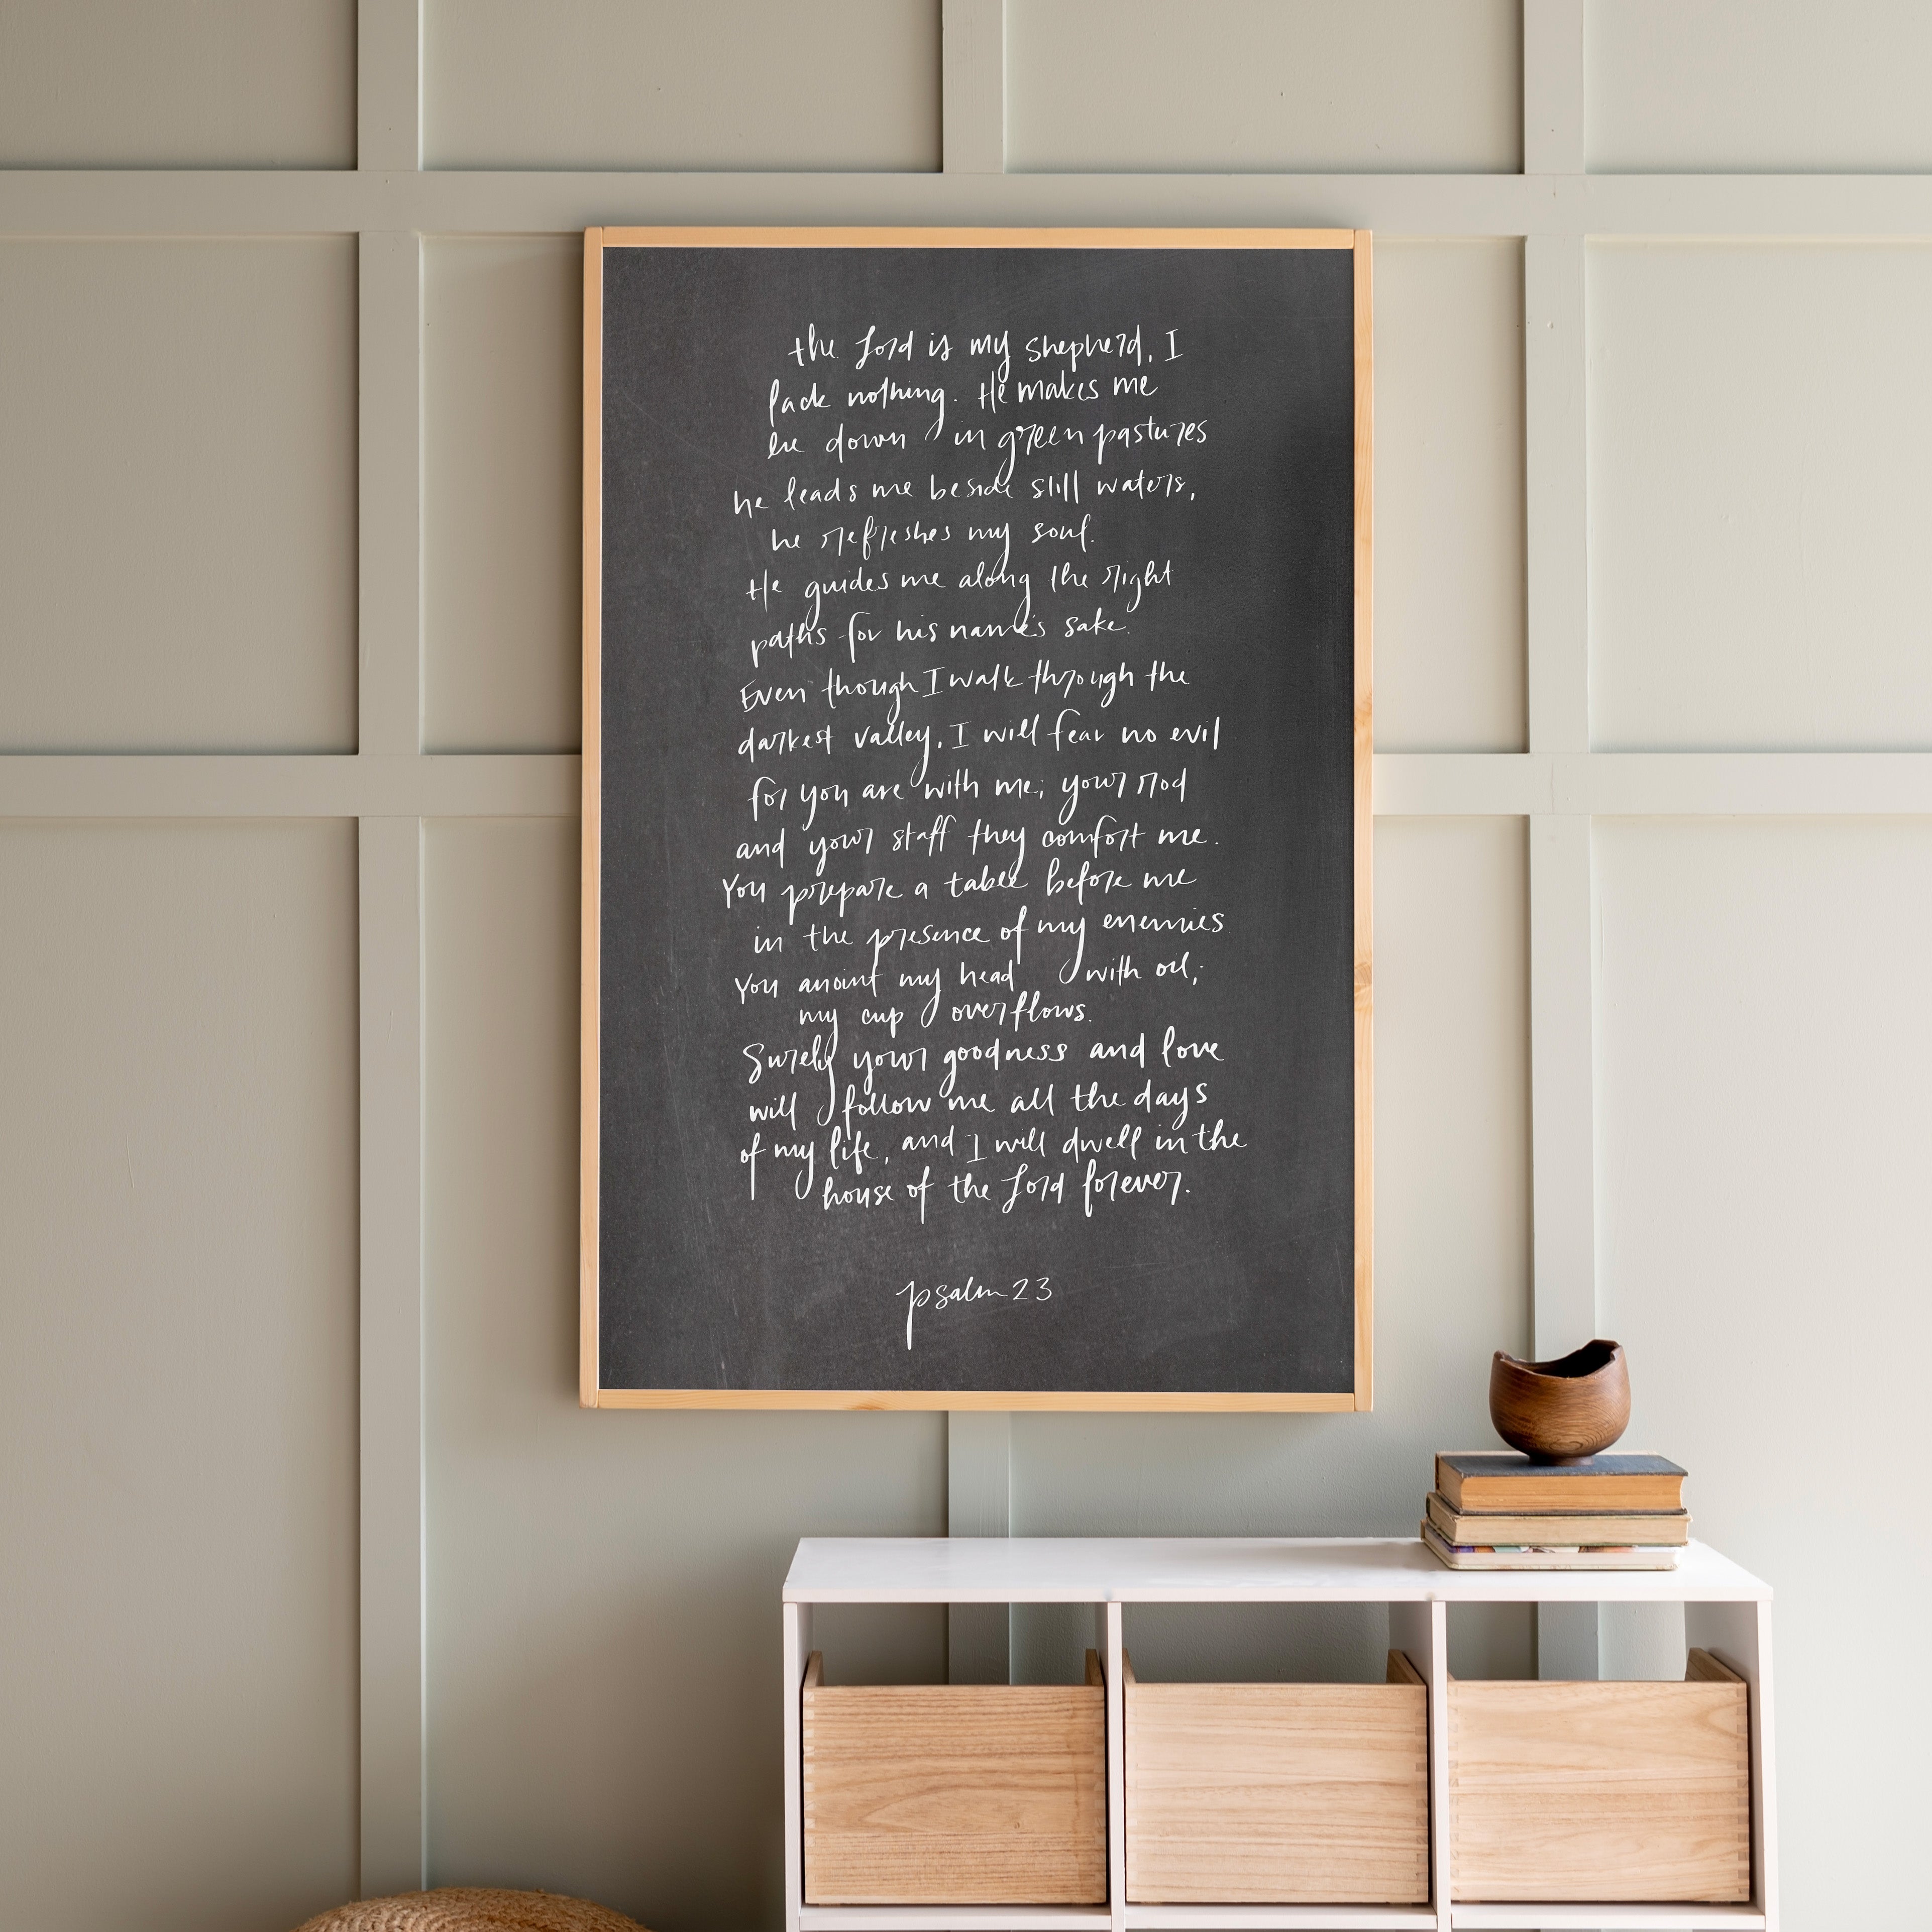 the Lord is my shepherd, I
lack nothing. He makes me
lie down in green pastures
he leads me beside still waters,
he refreshes my soul.
He guides me along the right
paths for his name's sake.
Even though I walk through the
darkest valley, I will fear no evil
for you are with me; your rod
and your staff they comfort me.
You prepare a table before me
in the presence of my enemies
You anoint my head with oil;
my cup overflows.
Surely your goodness and love
will follow me all the days
of my life, and I will dwell in the
house of the Lord forever.
psalm 23